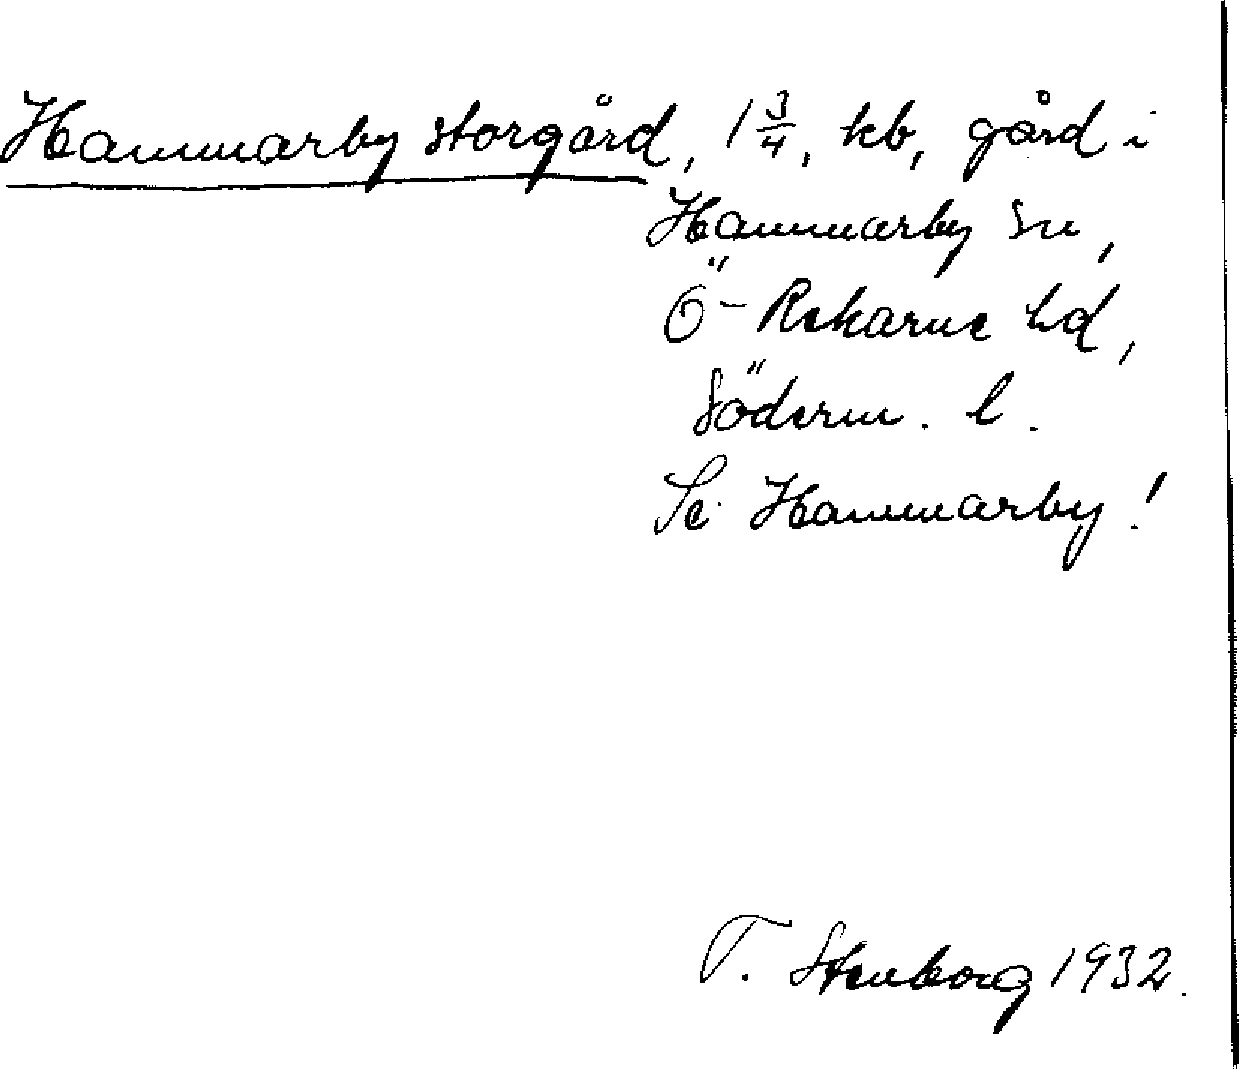 Hammarby storgård, 1 3/4, kb, gård i
Hammarby sn,
Ö-Rekarne hd,
Söderm. l.
Se Hammarby!
T. Stenborg 1932.